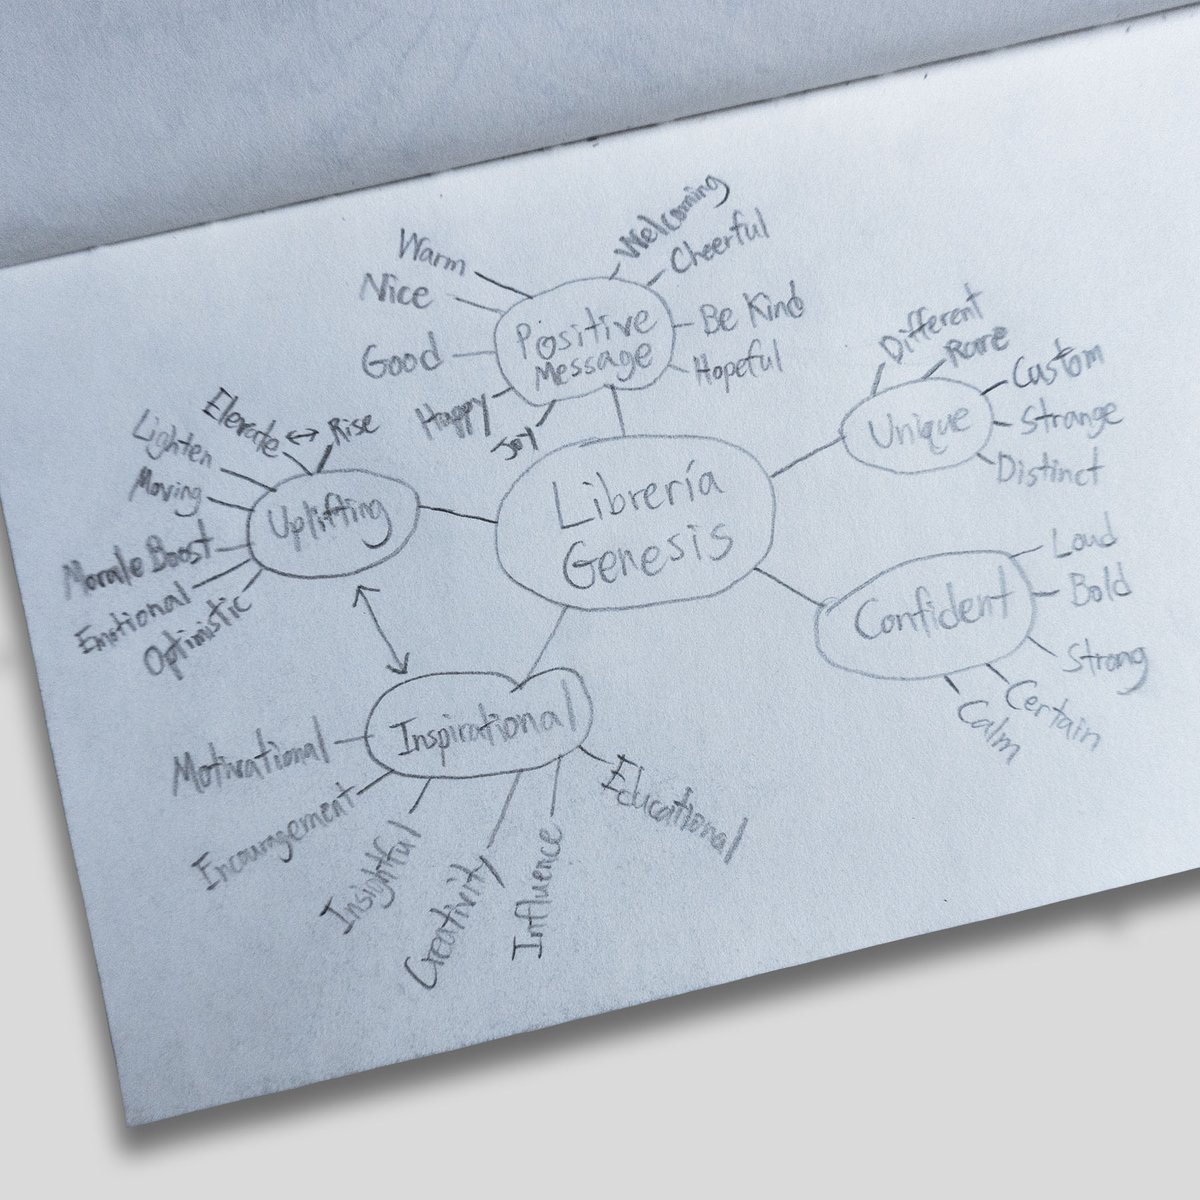 Welcoming
Warm
Cheerful
Nice
Positive
Message
Be Kind
Good
Hopeful
Happy
Joy
Different
Rare
Custom
Unique
Strange
Distinct
Elevate
Rise
Lighten
Moving
Uplifting
Morale Boost
Emotional
Optimistic
Librería
Genesis
Loud
Bold
Confident
Strong
Certain
Calm
Motivational
Inspirational
Encouragement
Insightful
Creativity
Influence
Educational